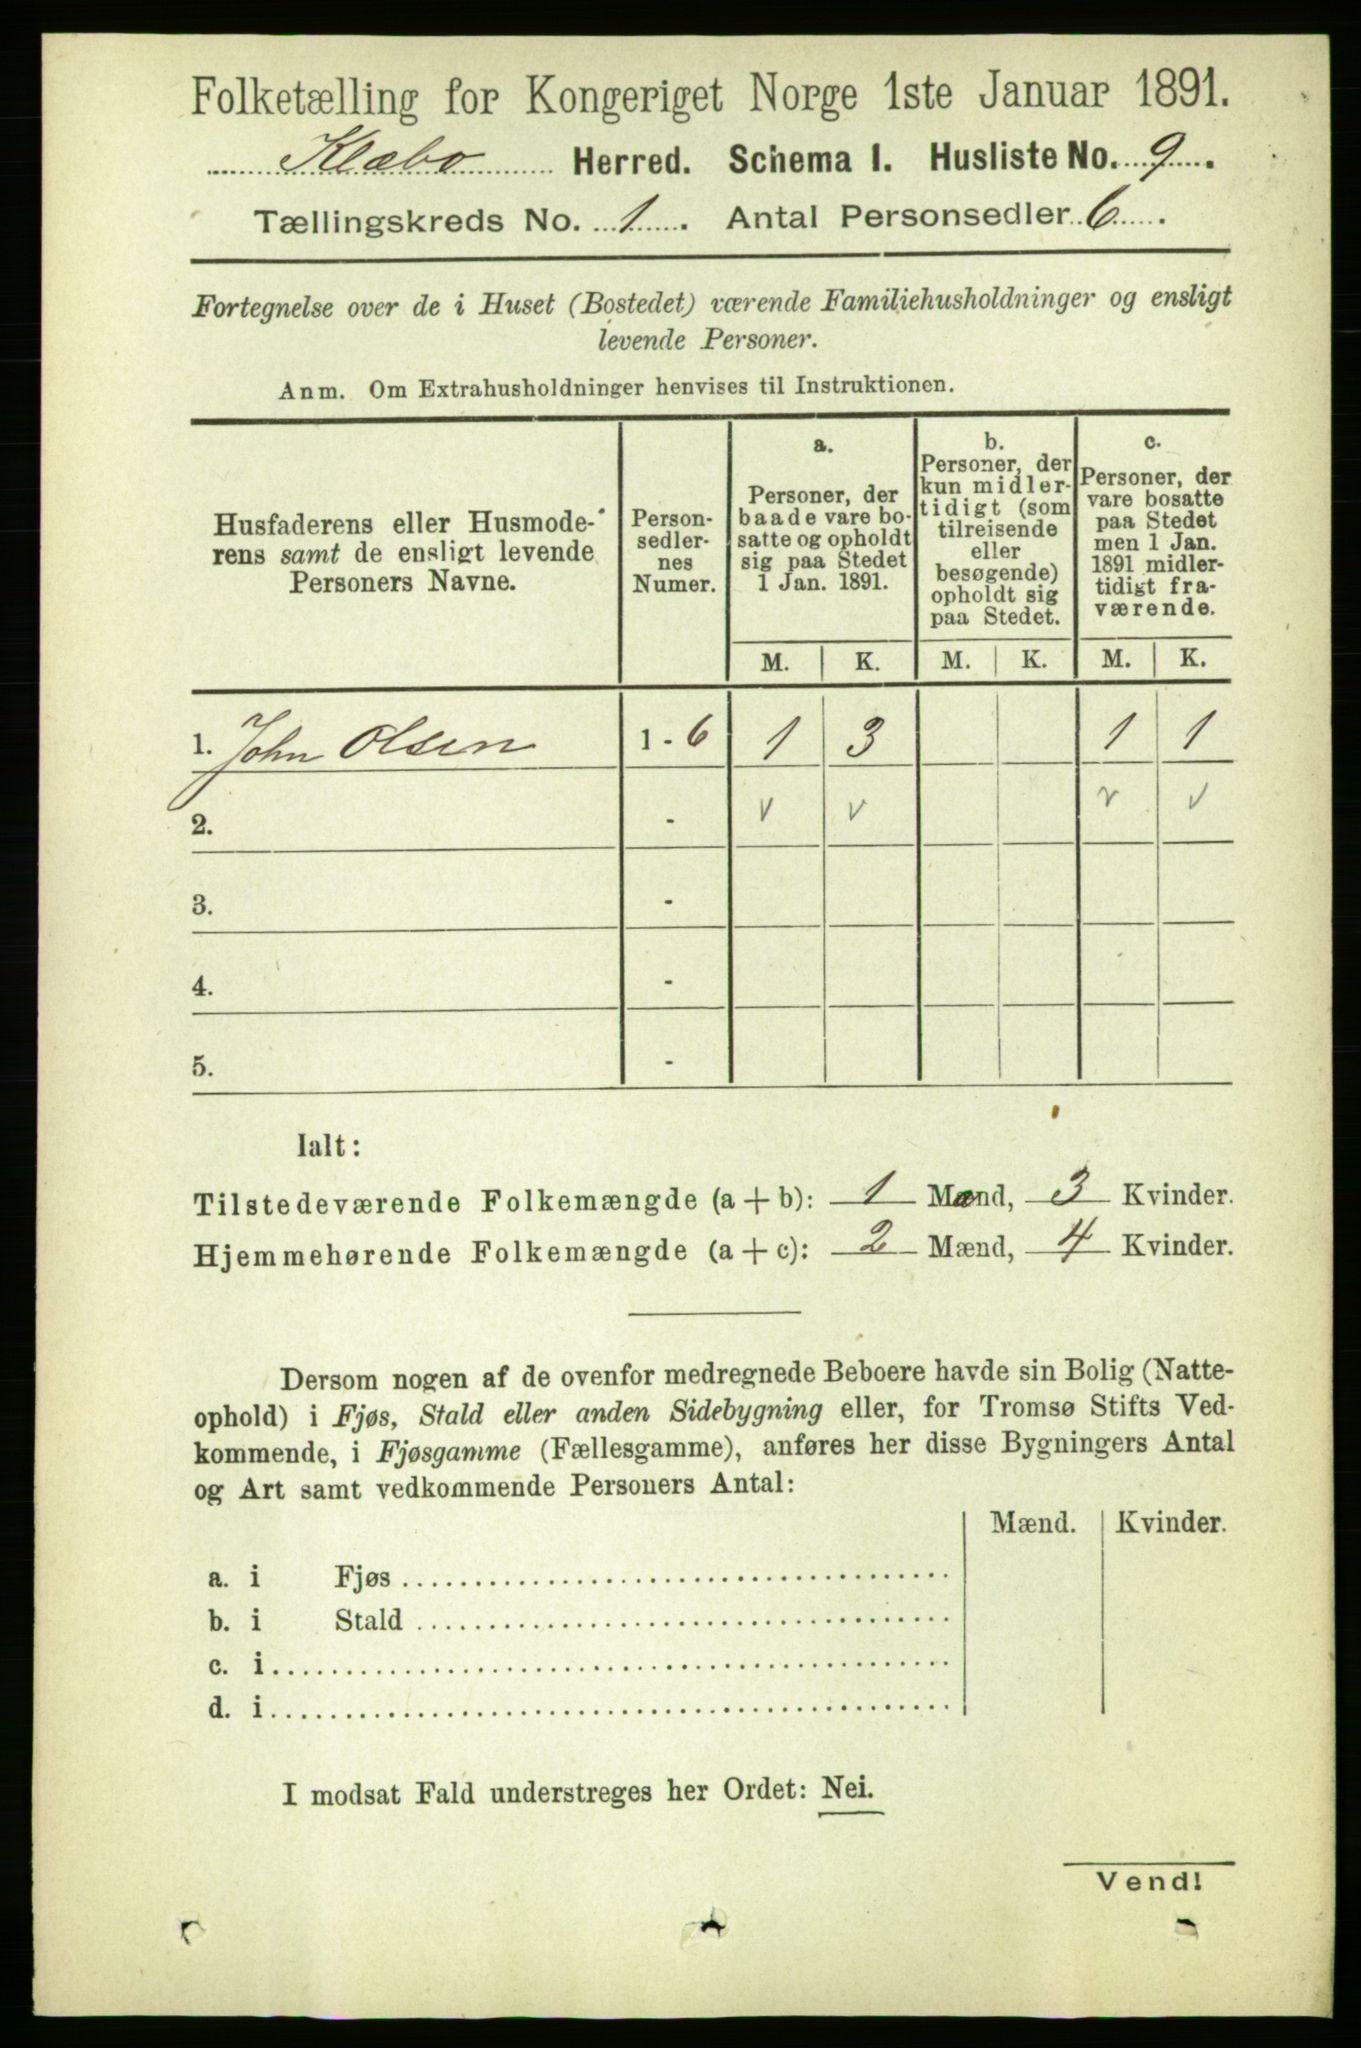 Folketælling for Kongeriget Norge 1ste Januar 1891.
Klæbo Herred. Schema 1. Husliste No. 9.
Tællingskreds No. 1. Antal Personsedler 6.
Fortegnelse over de i Huset (Bostedet) værende Familiehusholdninger og ensligt
levende Personer.
Anm. Om Extrahusholdninger henvises til Instruktionen.
Husfaderens eller Husmode-
rens samt de ensligt levende
Personers Navne.
Person-
sedler-
nes
Numer.
a.
Personer, der
baade vare bo-
satte og opholdt
sig paa Stedet
1 Jan. 1891.
b.
Personer, der
kun midler-
tidigt (som
tilreisende
eller
besøgende)
opholdt sig
paa Stedet.
c.
Personer, der
vare bosatte
paa Stedet
men 1 Jan.
1891 midler-
tidigt fra-
værende.
M. K. M. K. M. K.
1. John Olsen 1 - 6 1 3 1 1
2. - v v v v
3. -
4. -
5. -
Ialt:
Tilstedeværende Folkemængde (a + b): 1 Mænd, 3 Kvinder.
Hjemmehørende Folkemængde (a + c): 2 Mænd, 4 Kvinder.
Dersom nogen af de ovenfor medregnede Beboere havde sin Bolig (Natte-
ophold) i Fjøs, Stald eller anden Sidebygning eller, for Tromsø Stifts Ved-
kommende, i Fjøsgamme (Fællesgamme), anføres her disse Bygningers Antal
og Art samt vedkommende Personers Antal:
Mænd. Kvinder.
a. i Fjøs
b. i Stald
c. i
d. i
I modsat Fald understreges her Ordet: Nei.
Vend!